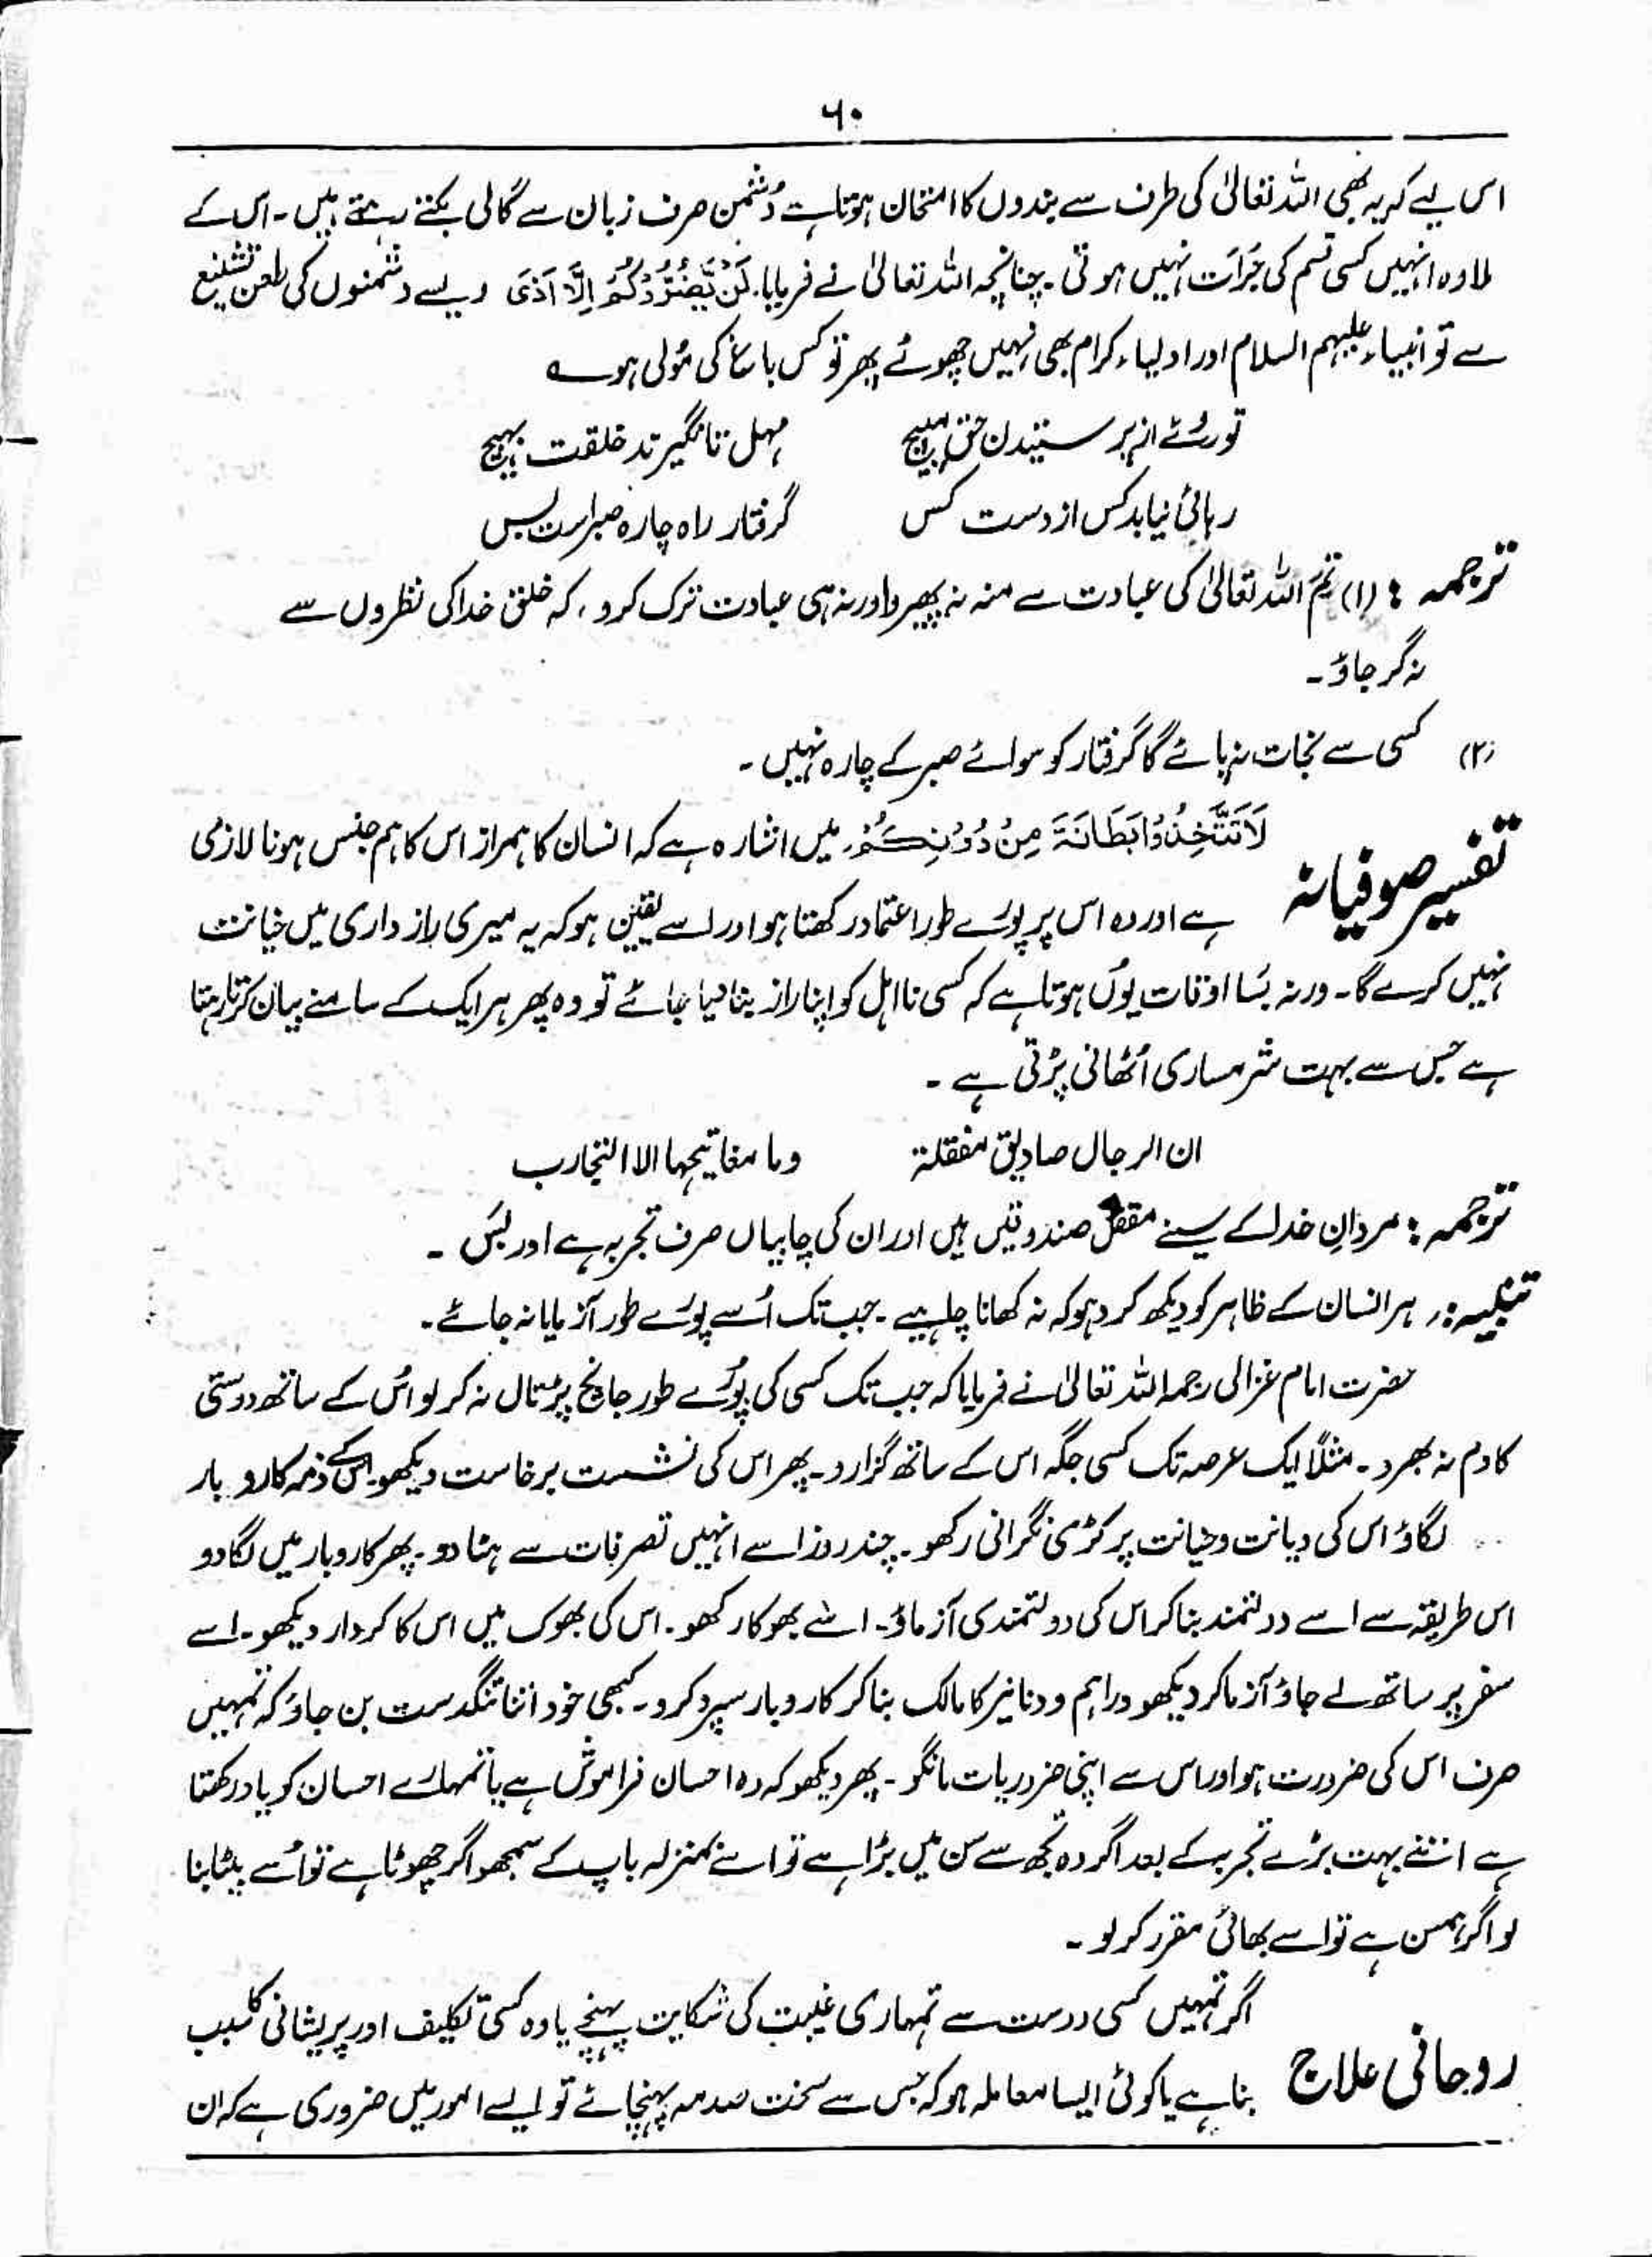 ۶۰
اس لیے کہ یہ بھی اللہ تعالیٰ کی طرف سے بندوں کا امتحان ہوتا ہے دُشمن صرف زبان سے گالی بکتے رہتے ہیں۔ اس کے
لاوہ انہیں کسی قسم کی جُرأت نہیں ہوتی۔ چنانچہ اللہ تعالیٰ نے فرمایا۔ لَنْ یَّضُرُّوْکُمْ اِلَّا اَذًی ویسے دشمنوں کی طعن تشنیع
سے تو انبیاء علیہم السلام اور اولیاء کرام بھی نہیں چھوٹے پھر تو کس باغ کی مُولی ہو ؎
تو روئے از پرستیدن حق مپیچ مہل تا نگیرند خلقت بہیچ
رہائی نیابد کس از دست کس گرفتار راہ چارہ صبر است بس
ترجمہ : (۱) تُم اللہ تعالیٰ کی عبادت سے منہ نہ پھیرو اور نہ ہی عبادت ترک کرو ، کہ خلق خدا کی نظروں سے
نہ گر جاؤ۔
(۲) کسی سے نجات نہ پائے گا گرفتار کو سوائے صبر کے چارہ نہیں۔
تفسیر صوفیانہ لَا تَتَّخِذُوْا بِطَانَۃً مِنْ دُوْنِکُمْ، میں اشارہ ہے کہ انسان کا ہمراز اس کا ہم جنس ہونا لازمی
ہے اور وہ اس پر پورے طور اعتماد رکھتا ہو اور اسے یقین ہو کہ یہ میری راز داری میں خیانت
نہیں کرے گا۔ ورنہ بسا اوقات یوں ہوتا ہے کہ کسی نااہل کو اپنا راز بنا لیا جائے تو وہ پھر ہر ایک کے سامنے بیان کرتا رہتا
ہے جس سے بہت شرمساری اُٹھانی پڑتی ہے۔
ان الرجال صادیق مفقلۃ وما مفاتیحہا الا التجارب
ترجمہ : مردانِ خدا کے سینے مقفل صندوقیں ہیں اور ان کی چابیاں صرف تجربہ ہے اور بس۔
تنبیہ : ہر انسان کے ظاہر کو دیکھ کر دہوکہ نہ کھانا چاہیے۔ جب تک اُسے پورے طور آزمایا نہ جائے۔
حضرت امام غزالی رحمہ اللہ تعالیٰ نے فرمایا کہ جب تک کسی کی پورے طور جانچ پڑتال نہ کر لو اُس کے ساتھ دوستی
کا دم نہ بھرو۔ مثلاً ایک عرصہ تک کسی جگہ اس کے ساتھ گزارو۔ پھر اس کی نشست برخاست دیکھو۔ اس کے ذمہ کاروبار
لگاؤ اس کی دیانت و خیانت پر کڑی نگرانی رکھو۔ چند روز اسے انہیں تصرفات سے ہٹا دو۔ پھر کاروبار میں لگا دو
اس طریقہ سے اسے دولتمند بنا کر اس کی دولتمندی آزماؤ۔ اسے بھوکا رکھو۔ اس کی بھوک میں اس کا کردار دیکھو۔ اسے
سفر پر ساتھ لے جاؤ آزما کر دیکھو دراہم و دنانیر کا مالک بنا کر کاروبار سپرد کرو۔ کبھی خود اتنا تنگدست بن جاؤ کہ تمہیں
صرف اس کی ضرورت ہو اور اس سے اپنی ضروریات مانگو۔ پھر دیکھو کہ وہ احسان فراموش ہے یا تمہارے احسان کو یاد رکھتا
ہے اتنے بہت بڑے تجربہ کے بعد اگر وہ تجھ سے سن میں بڑا ہے تو اسے بمنزلہ باپ کے سمجھو اگر چھوٹا ہے تو اُسے بیٹا بنا
لو اگر ہمسن ہے تو اسے بھائی مقرر کر لو۔
روحانی علاج اگر تمہیں کسی دوست سے تمہاری غیبت کی شکایت پہنچے یا وہ کسی تکلیف اور پریشانی کا سبب
بنا ہے یا کوئی ایسا معاملہ ہو کہ جس سے سخت صدمہ پہنچائے تو ایسے امور میں ضروری ہے کہ ان